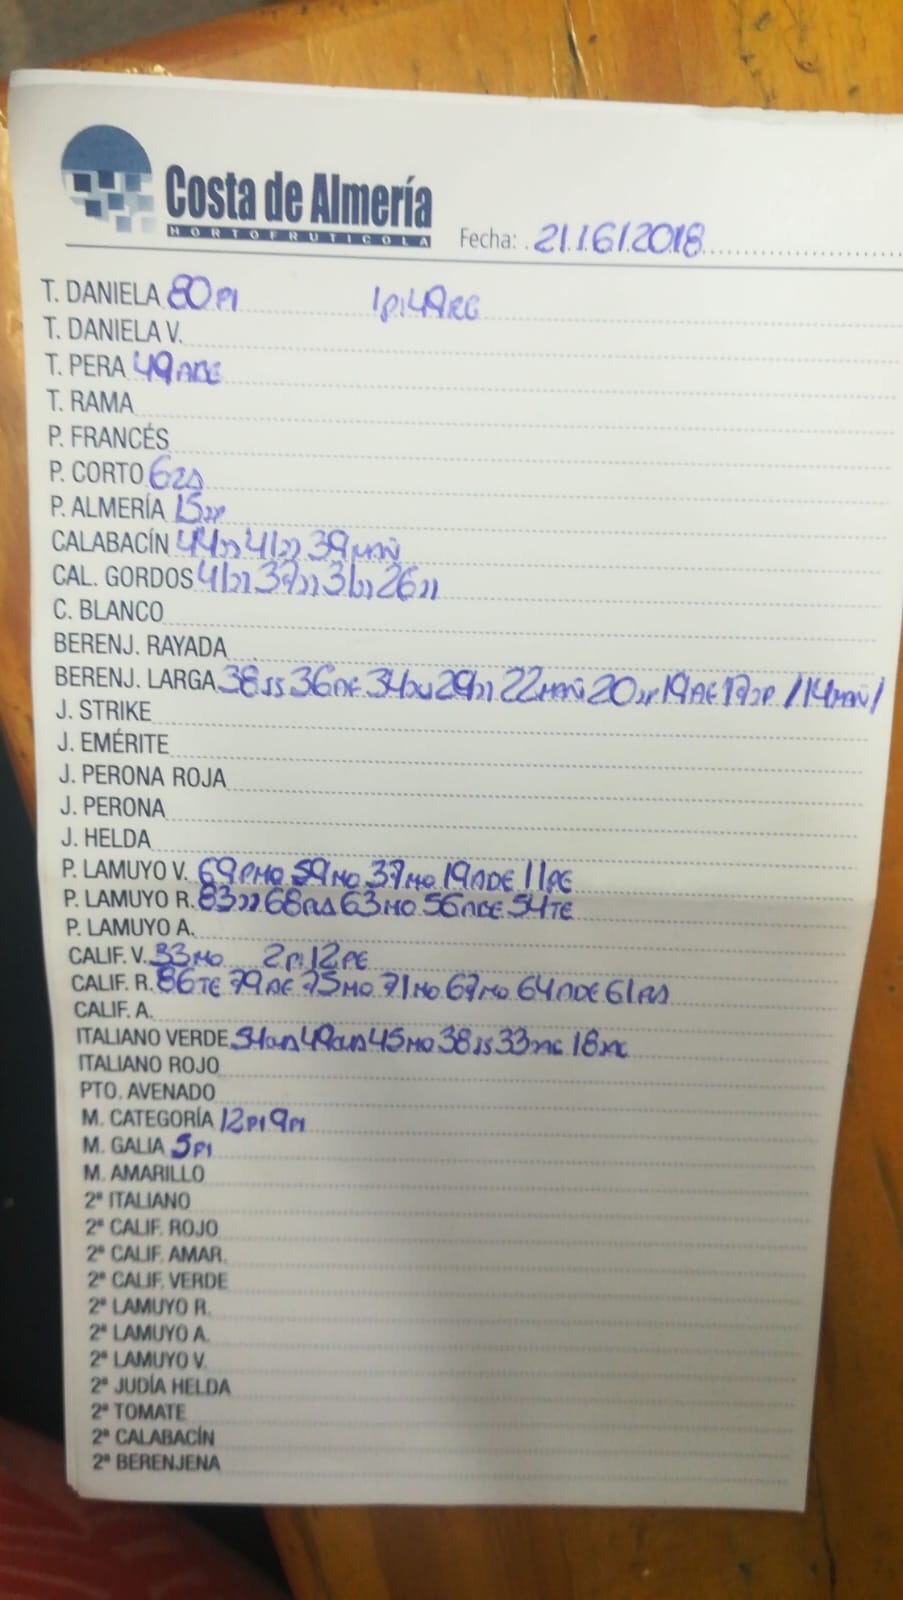 Costa de Almería
HORTOFRUTICOLA
Fecha: 21/6/2018
T. DANIELA 80PI 1pi 49RG
T. DANIELA V.
T. PERA 49ADE
T. RAMA
P. FRANCÉS
P. CORTO 62
P. ALMERÍA 15
CALABACÍN 44 41 39MAÑ
CAL. GORDOS 41 37 31 26
C. BLANCO
BERENJ. RAYADA
BERENJ. LARGA 38JS 36AE 34 29 22MAÑ 20 19AE 17JP /14MAÑ/
J. STRIKE
J. EMÉRITE
J. PERONA ROJA
J. PERONA
J. HELDA
P. LAMUYO V. 69PMO 59MO 37MO 19ADE 11PE
P. LAMUYO R. 83 68 63MO 56ADE 54TE
P. LAMUYO A.
CALIF. V. 33MO 2Pi 12PE
CALIF. R. 86TE 79AE 75MO 71MO 67MO 64ADE 61
CALIF. A.
ITALIANO VERDE 54 49 45MO 38JS 33 18
ITALIANO ROJO
PTO. AVENADO
M. CATEGORÍA 12PI 9PI
M. GALIA 5PI
M. AMARILLO
2ª ITALIANO
2ª CALIF. ROJO
2ª CALIF. AMAR.
2ª CALIF. VERDE
2ª LAMUYO R.
2ª LAMUYO A.
2ª LAMUYO V.
2ª JUDÍA HELDA
2ª TOMATE
2ª CALABACÍN
2ª BERENJENA